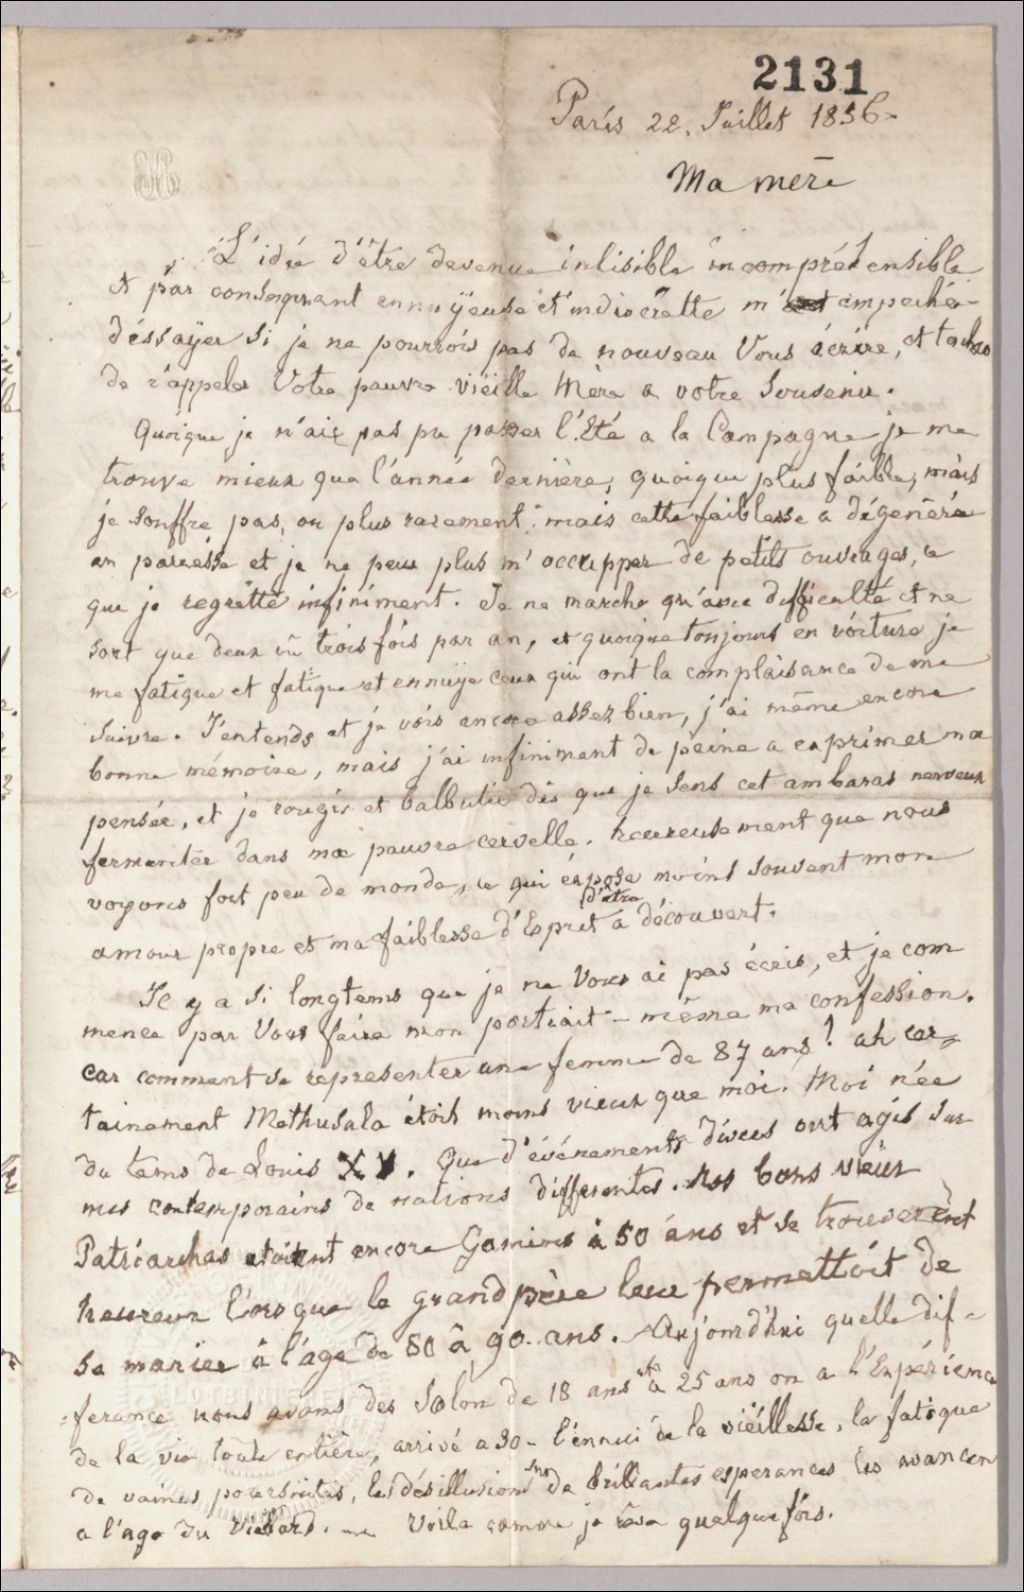 2131
Paris 22. Juillet 1856-
Ma mère
L'idée d'être devenue inlisible incompréhensible
et par consequent ennuÿeuse et indiscrètte m'a empeché
d'éssaÿer si je ne pourrois pas de nouveau Vous écrire, et tacher
de r'appeler Votre pauvre vieille Mère a votre Souvenir.
Quoique je n'aie pas pu passer l'Eté a la Campagne je me
trouve mieux que l'année dernière, quoique plus faible, mais
je souffre pas, ou plus rarement: mais cette faiblesse a dégénéré
en paresse et je ne peux plus m'occupper de petits ouvrages, ce
que je regrètte infiniment. Je ne marche qu'avec difficulté et ne
sort que deux ou trois fois par an, et quoique toujours en voiture je
me fatigue et fatigue et ennuÿe ceux qui ont la complaisance de me
suivre. J'entends et je vois encore assez bien, j'ai même encore
bonne mémoire, mais j'ai infiniment de peine a exprimer ma
pensée, et je rougis et balbutie dès que je sens cet ambaras nerveux
fermenter dans ma pauvre cervelle. heureusement que nous
voyons fort peu de monde, ce qui éxpose moins souvent mon
amour propre et ma faiblesse d'Esprit d'être a découvert.
Il y a si longtems que je ne Vous ai pas écris, et je com
mence par Vous faire mon portrait - même ma confession.
Car comment se representer une femme de 87 ans! ah cer-
tainement Methusala étoit moins vieux que moi. Moi née
du tems de Louis XV. Que d'événements divers ont agis sur
mes contemporains de nations differentes. Nos bons vieux
Patriarches etoient encore Gamins à 50 ans et se trouverent
heureux lorsque le grandpère leur permettoit de
se marier à l'age de 80 à 90 ans. Aujourd'hui quelle dif-
ference nous avons des Solon de 18 ans à 25 ans on a l'Expérience
de la vie toute entière, arrivé a 30 - l'ennui de la vieillesse, la fatigue
de vaines poursuites, les désillusions de brillantes esperances les avancen
a l'age du Viellard. - Voila comme je rêve quelque fois.